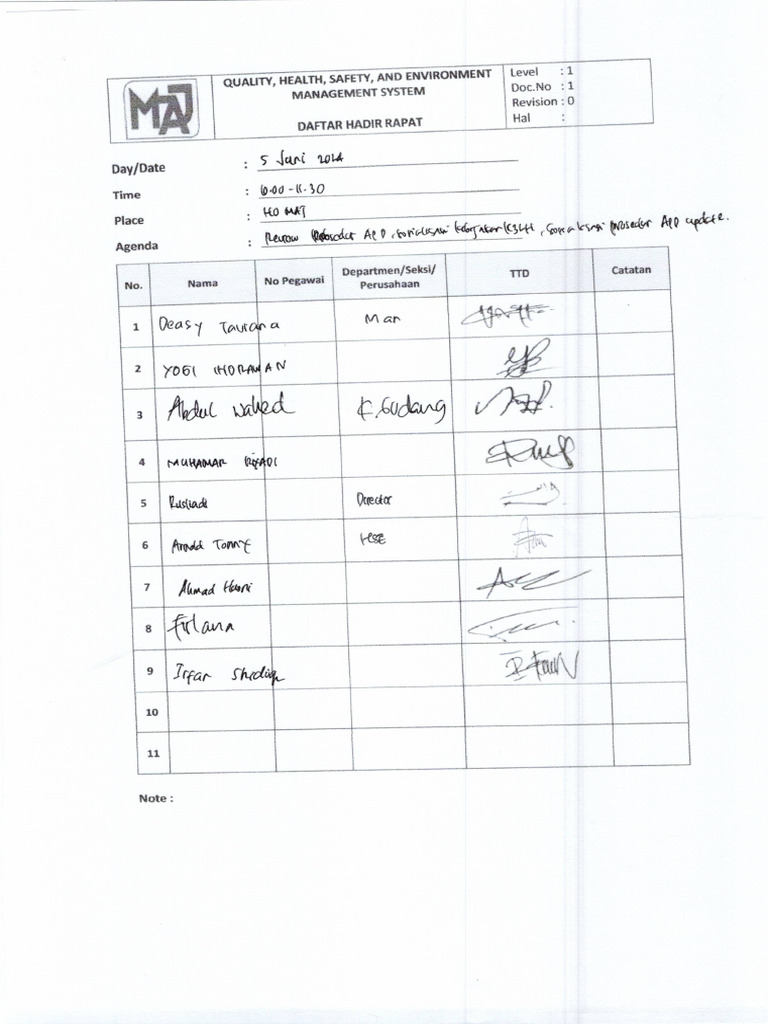 MAJ
QUALITY, HEALTH, SAFETY, AND ENVIRONMENT
MANAGEMENT SYSTEM
DAFTAR HADIR RAPAT
Level : 1
Doc.No : 1
Revision : 0
Hal :
Day/Date : 5 Juni 2024
Time : 10.00 - 11.30
Place : HO MAJ
Agenda : Review Prosedur APD, sosialisasi kebijakan K3LH, sosialisasi prosedur APD update.
No. Nama No Pegawai Departmen/Seksi/ Perusahaan TTD Catatan
1 Deasy Taurana Mar
2 YOGI INDRAWAN
3 Abdul Wahed K. Gudang
4 MUHAMAR
5 Rusliadi Director
6 Tommy HSE
7 Ahmad
8
9 Irfan Shediq
10
11
Note :